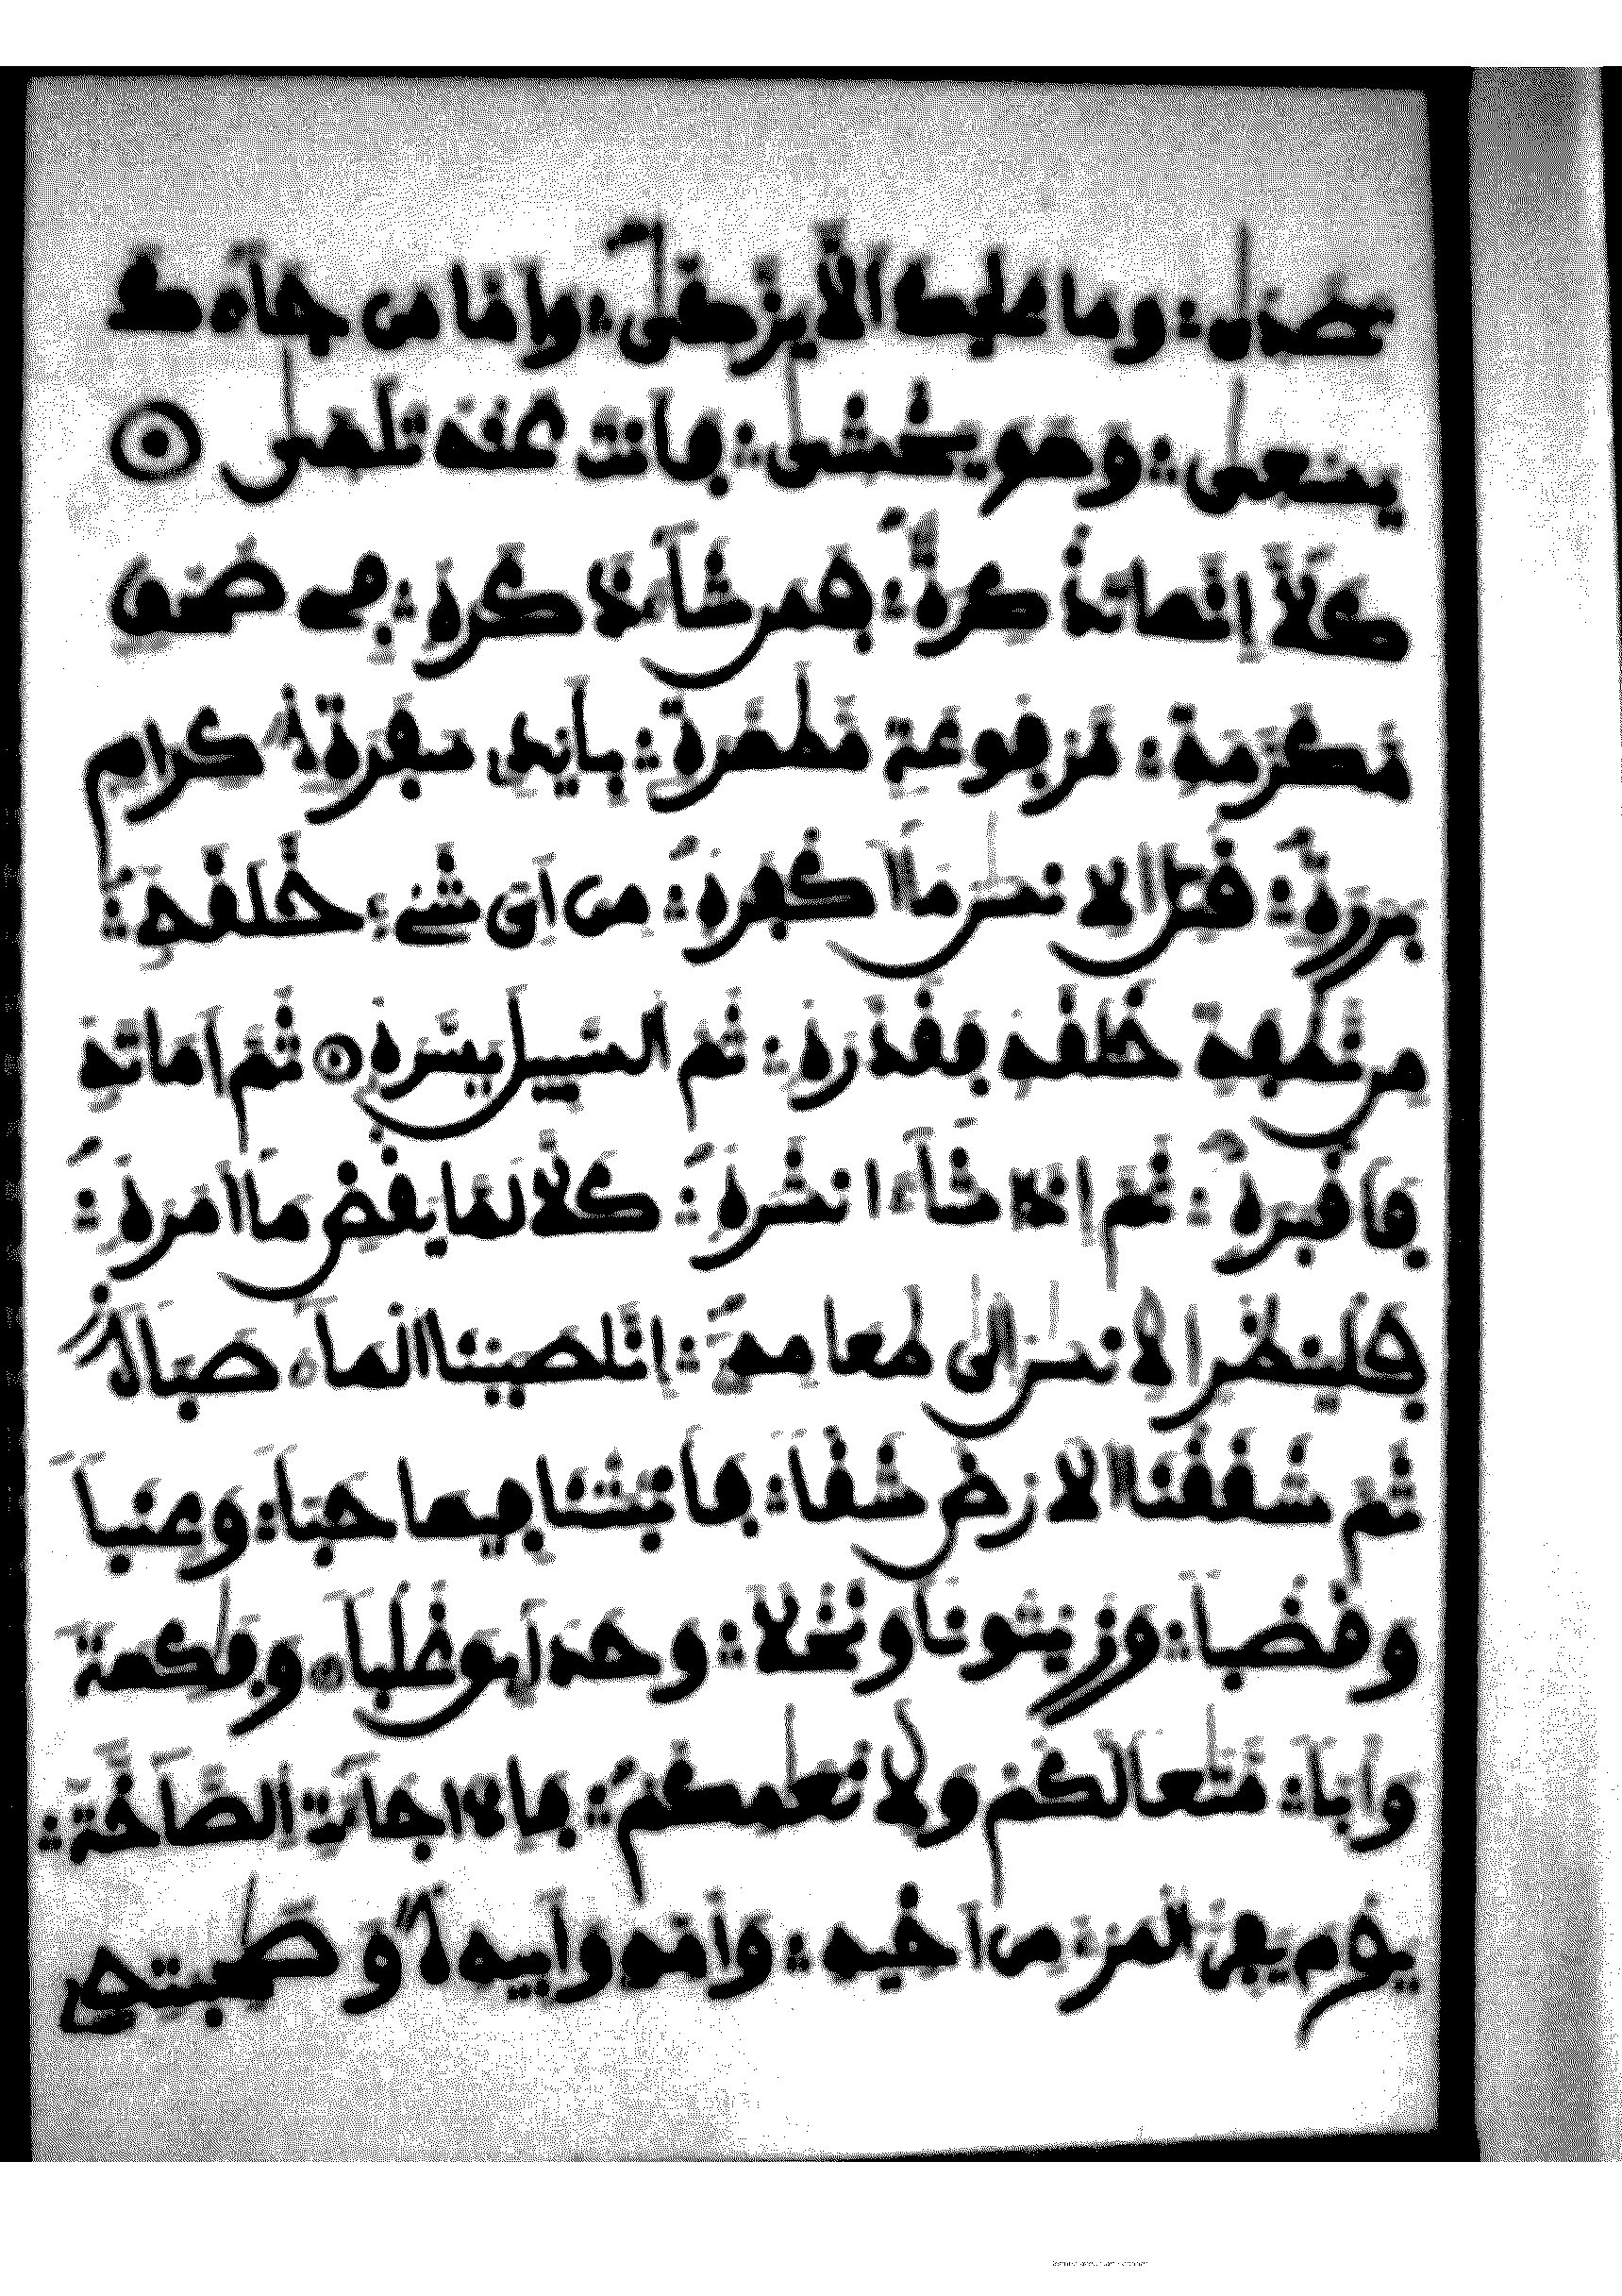 تصدى ۝ وما عليك الا يزكى ۝ واما من جاءك
يسعى ۝ وهو يخشى ۝ فانت عنه تلهى ۝
كلا انها تذكرة ۝ فمن شاء ذكره ۝ في صحف
مكرمة ۝ مرفوعة مطهرة ۝ بايدى سفرة ۝ كرام
بررة ۝ قتل الانسن ما اكفره ۝ من اى شىء خلقه ۝
من نطفة خلقه فقدره ۝ ثم السبيل يسره ۝ ثم اماته
فاقبره ۝ ثم اذا شاء انشره ۝ كلا لما يقض ما امره ۝
فلينظر الانسن الى طعامه ۝ انا صببنا الماء صبا ۝
ثم شققنا الارض شقا ۝ فانبتنا فيها حبا ۝ وعنبا
وقضبا ۝ وزيتونا ونخلا ۝ وحدايق غلبا ۝ وفكهة
وابا ۝ متعا لكم ولانعمكم ۝ فاذا جاءت الصاخة ۝
يوم يفر المرء من اخيه ۝ وامه وابيه ۝ وصحبته